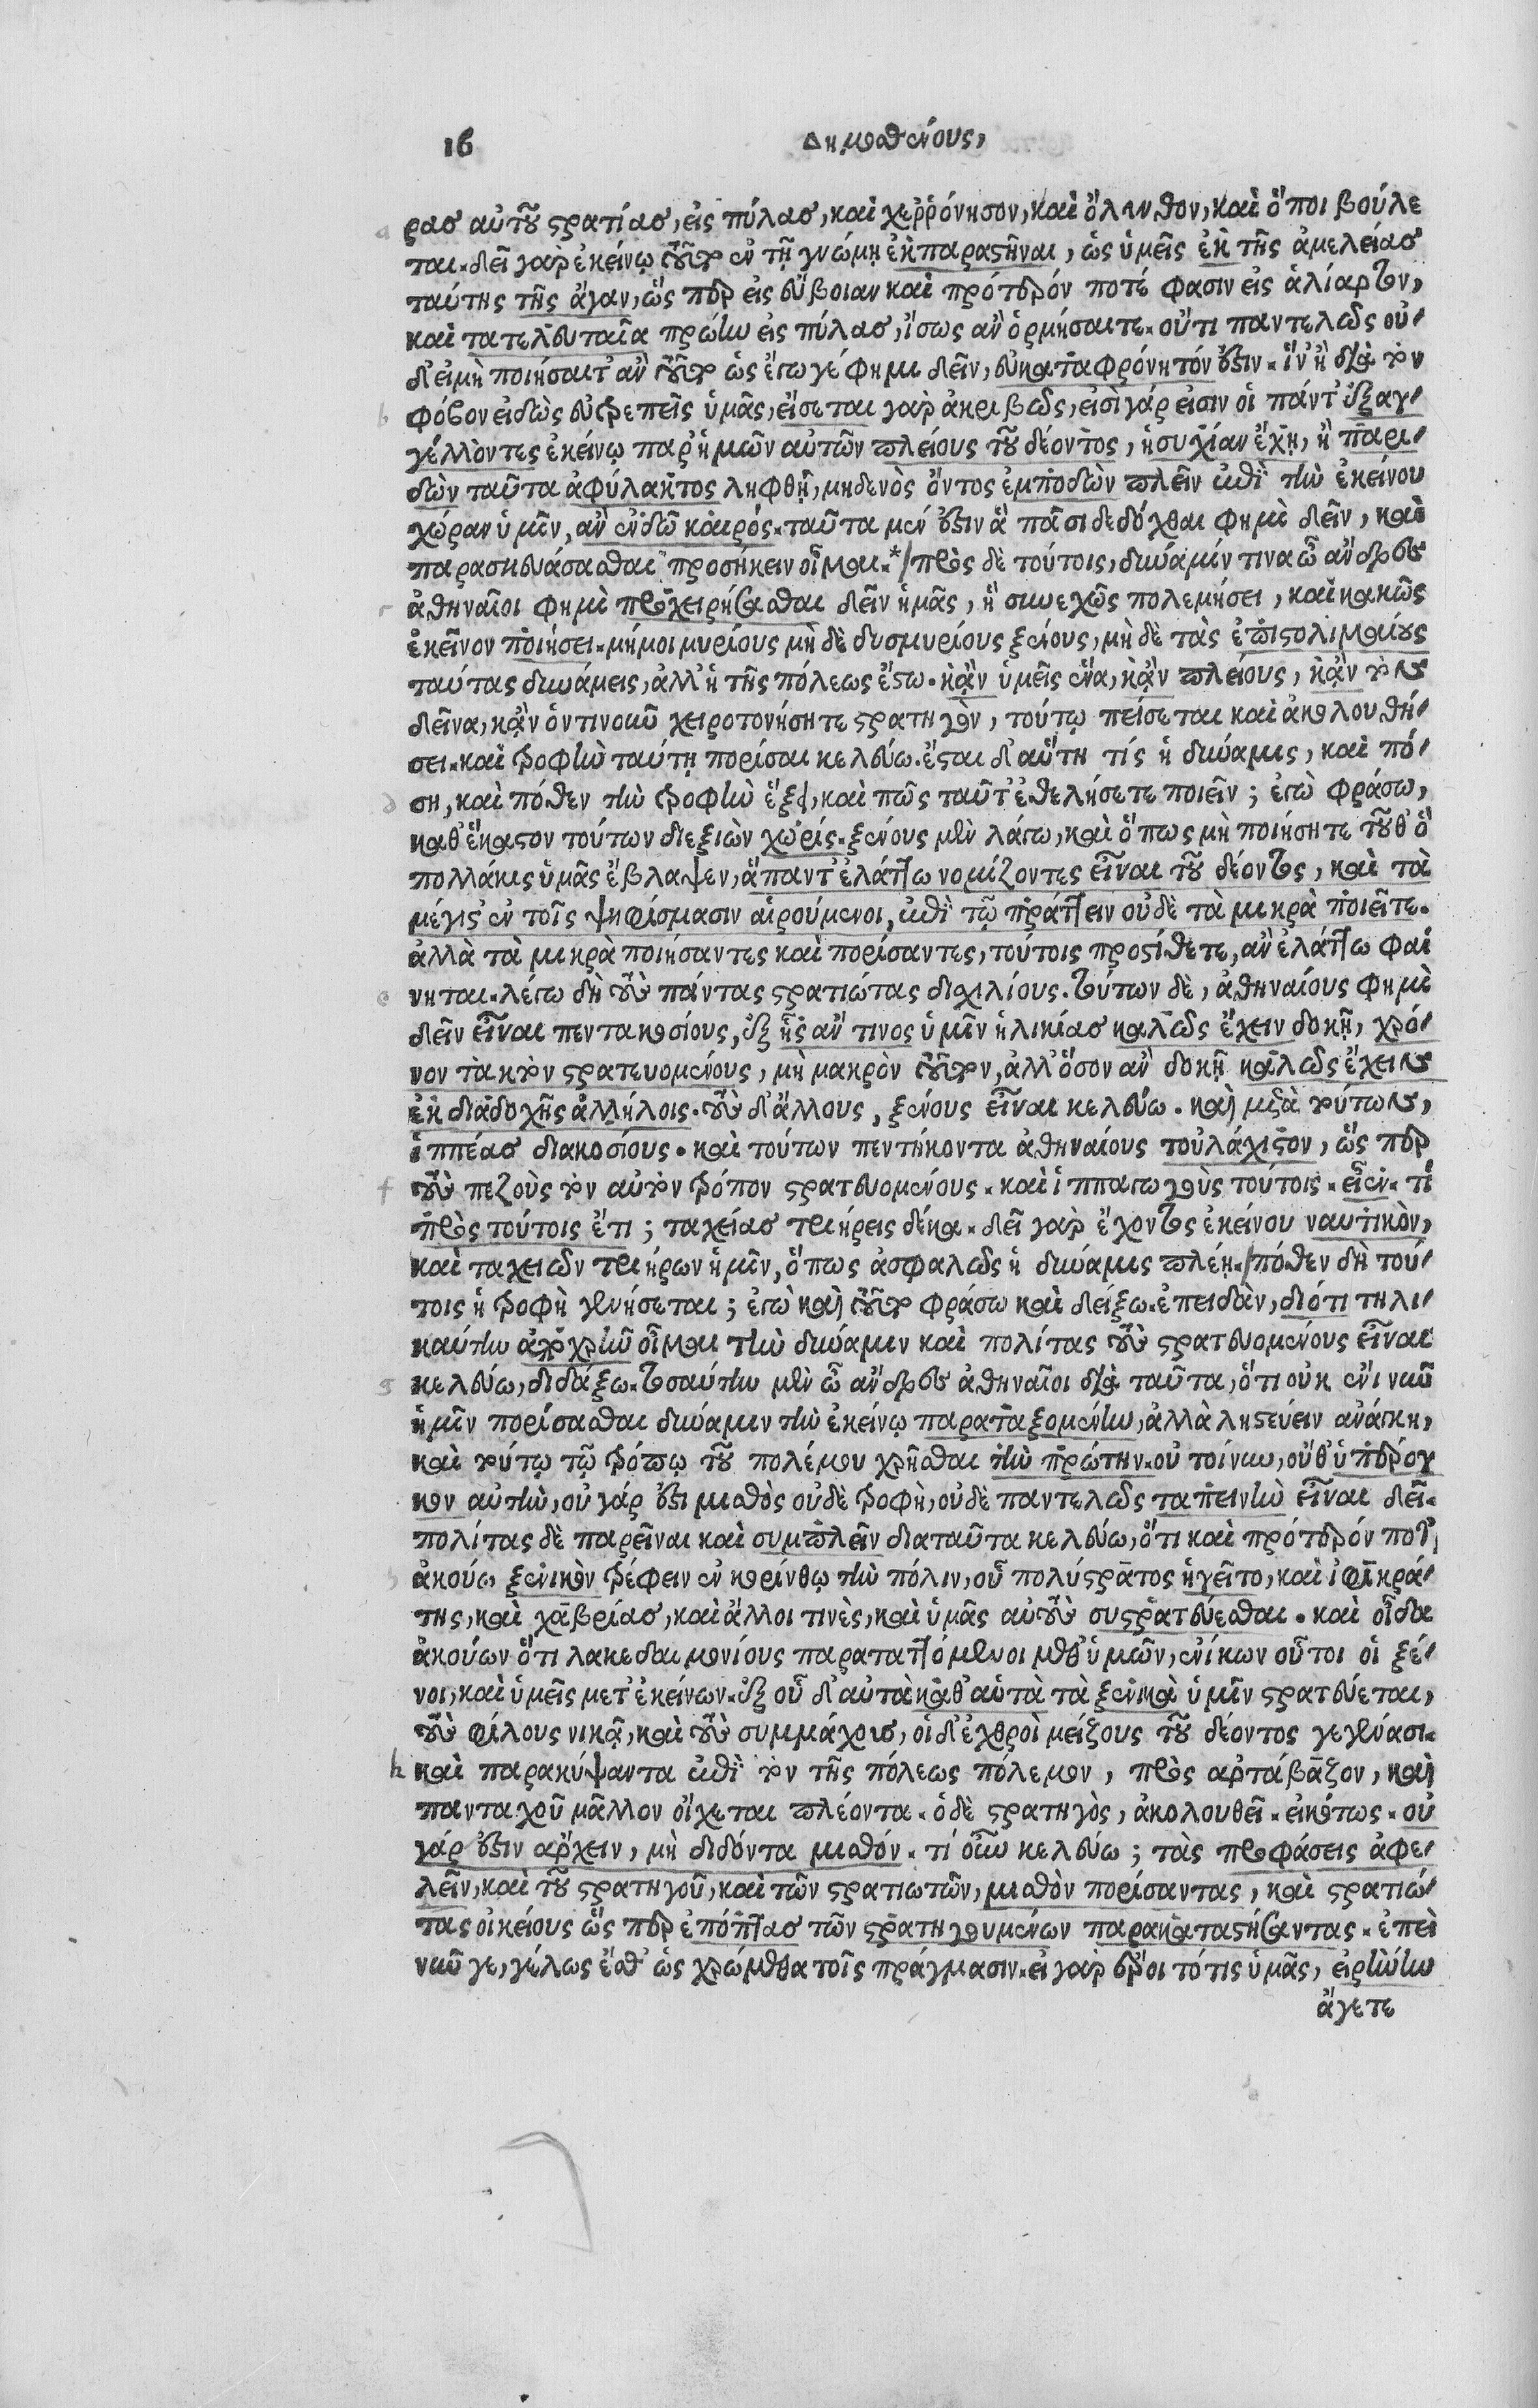 16 Δημοσθένους,
ρας αὐτοῦ στρατίας, εἰς πύλας, καὶ χερρόνησον, καὶ ὄλυνθον, καὶ ὅποι βούλε
ται. δεῖ γὰρ ἐκείνῳ τοῦτο ἐν τῇ γνώμῃ ἐκπαραστῆναι, ὡς ὑμεῖς ἐκ τῆς ἀμελείας
ταύτης τῆς ἄγαν, ὥς περ εἰς εὔβοιαν καὶ πρότερόν ποτέ φασιν εἰς ἁλίαρτον,
καὶ τατελευταῖα πρώην εἰς πύλας, ἴσως ἂν ὁρμήσαιτε. οὔτι παντελῶς οὐ-
δ' εἰ μὴ ποιήσαιτ' ἂν τοῦτο ὡς ἔγωγέ φημι δεῖν, εὐκαταφρόνητόν ἐστιν. ἵν' ἢ διὰ τὸν
φόβον εἰδὼς εὐτρεπεῖς ὑμᾶς, εἴσεται γὰρ ἀκριβῶς, εἰσὶ γάρ εἰσιν οἱ πάντ' ἐξαγ-
γέλλοντες ἐκείνῳ παρ' ἡμῶν αὐτῶν πλείους τοῦ δέοντος, ἡσυχίαν ἔχῃ, ἢ παρι-
δὼν ταῦτα ἀφύλακτος ληφθῇ, μηδενὸς ὄντος ἐμποδὼν πλεῖν ἐπὶ τὴν ἐκείνου
χώραν ὑμῖν, ἂν ἐνδῶ καιρός. ταῦτα μέν ἐστιν ἃ πᾶσι δεδόχθαι φημὶ δεῖν, καὶ
παρασκευάσασθαι προσήκειν οἶμαι.* πρὸς δὲ τούτοις, δύναμίν τινα ὦ ἄνδρες
ἀθηναῖοι φημὶ προχειρίσασθαι δεῖν ἡμᾶς, ἣ συνεχῶς πολεμήσει, καὶ κακῶς
ἐκεῖνον ποιήσει. μή μοι μυρίους μὴ δὲ δυσμυρίους ξένους, μὴ δὲ τὰς ἐπιστολιμαίους
ταύτας δυνάμεις, ἀλλ' ἢ τῆς πόλεως ἔστω. κἂν ὑμεῖς ἕνα, κἂν πλείους, κἂν τὸν
δεῖνα, κἂν ὁντινοῦν χειροτονήσητε στρατηγὸν, τούτῳ πείσεται καὶ ἀκολουθή-
σει. καὶ τροφὴν ταύτῃ πορίσαι κελεύω. ἔσται δ' αὕτη τίς ἡ δύναμις, καὶ πό-
ση, καὶ πόθεν τὴν τροφὴν ἕξει, καὶ πῶς ταῦτ' ἐθελήσετε ποιεῖν; ἐγὼ φράσω,
καθ' ἕκαστον τούτων διεξιὼν χωρίς. ξένους μὲν λέγω, καὶ ὅπως μὴ ποιήσητε τοῦθ' ὃ
πολλάκις ὑμᾶς ἔβλαψεν, ἅπαντ' ἐλάττω νομίζοντες εἶναι τοῦ δέοντος, καὶ τὰ
μέγιστ' ἐν τοῖς ψηφίσμασιν αἱρούμενοι, ἐπὶ τῷ πράττειν οὐδὲ τὰ μικρὰ ποιεῖτε.
ἀλλὰ τὰ μικρὰ ποιήσαντες καὶ πορίσαντες, τούτοις προστίθετε, ἂν ἐλάττω φαί
νηται. λέγω δὴ τοὺς πάντας στρατιώτας δισχιλίους. τούτων δὲ, ἀθηναίους φημὶ
δεῖν εἶναι πεντακοσίους, ἐξ ἧς ἄν τινος ὑμῖν ἡλικίας καλῶς ἔχειν δοκῇ, χρό-
νον τακτὸν στρατευομένους, μὴ μακρὸν τοῦτον, ἀλλ' ὅσον ἂν δοκῇ καλῶς ἔχειν
ἐκ διαδοχῆς ἀλλήλοις. τοὺς δ' ἄλλους, ξένους εἶναι κελεύω. καὶ μετὰ τούτων,
ἱππέας διακοσίους. καὶ τούτων πεντήκοντα ἀθηναίους τοὐλάχιστον, ὥς περ
τοὺς πεζοὺς τὸν αὐτὸν τρόπον στρατευομένους. καὶ ἱππαγωγοὺς τούτοις. εἶεν. τί
πρὸς τούτοις ἔτι; ταχείας τριήρεις δέκα. δεῖ γὰρ ἔχοντος ἐκείνου ναυτικὸν,
καὶ ταχειῶν τριήρων ἡμῖν, ὅπως ἀσφαλῶς ἡ δύναμις πλέῃ. πόθεν δὴ τού-
τοις ἡ τροφὴ γενήσεται; ἐγὼ καὶ τοῦτο φράσω καὶ δείξω. ἐπειδὰν, διότι τηλι-
καύτην ἀποχρῆν οἶμαι τὴν δύναμιν καὶ πολίτας τοὺς στρατευομένους εἶναι
κελεύω, διδάξω. τοσαύτην μὲν ὦ ἄνδρες ἀθηναῖοι διὰ ταῦτα, ὅτι οὐκ ἔνι νῦν
ἡμῖν πορίσασθαι δύναμιν τὴν ἐκείνῳ παραταξομένην, ἀλλὰ λῃστεύειν ἀνάγκη,
καὶ τούτῳ τῷ τρόπῳ τοῦ πολέμου χρῆσθαι τὴν πρώτην. οὐ τοίνυν, οὔθ' ὑπέρογ
κον αὐτὴν, οὐ γάρ ἐστι μισθὸς οὐδὲ τροφὴ, οὐδὲ παντελῶς ταπεινὴν εἶναι δεῖ.
πολίτας δὲ παρεῖναι καὶ συμπλεῖν διαταῦτα κελεύω, ὅτι καὶ πρότερόν ποτ'
ἀκούω ξενικὸν τρέφειν ἐν κορίνθῳ τὴν πόλιν, οὗ πολύστρατος ἡγεῖτο, καὶ ἰφικρά-
της, καὶ χαβρίας, καὶ ἄλλοι τινὲς, καὶ ὑμᾶς αὐτοὺς συστρατεύεσθαι. καὶ οἶδα
ἀκούων ὅτι λακεδαιμονίους παραταττόμενοι μεθ' ὑμῶν, ἐνίκων οὗτοι οἱ ξέ-
νοι, καὶ ὑμεῖς μετ' ἐκείνων. ἐξ οὗ δ' αὐτὰ καθ' αὑτὰ τὰ ξενικὰ ὑμῖν στρατεύεται,
τοὺς φίλους νικᾷ, καὶ τοὺς συμμάχους, οἱ δ' ἐχθροὶ μείζους τοῦ δέοντος γεγόνασι.
καὶ παρακύψαντα ἐπὶ τὸν τῆς πόλεως πόλεμον, πρὸς ἀρτάβαζον, καὶ
πανταχοῦ μᾶλλον οἴχεται πλέοντα. ὁ δὲ στρατηγὸς, ἀκολουθεῖ. εἰκότως. οὐ
γάρ ἐστιν ἄρχειν, μὴ διδόντα μισθόν. τί οὖν κελεύω; τὰς προφάσεις ἀφε-
λεῖν, καὶ τοῦ στρατηγοῦ, καὶ τῶν στρατιωτῶν, μισθὸν πορίσαντας, καὶ στρατιώ-
τας οἰκείους ὥς περ ἐπόπτας τῶν στρατηγουμένων παρακαταστήσαντας. ἐπεὶ
νῦν γε, γέλως ἔσθ' ὡς χρώμεθα τοῖς πράγμασιν. εἰ γὰρ ἔροιτό τις ὑμᾶς, εἰρήνην
ἄγετε